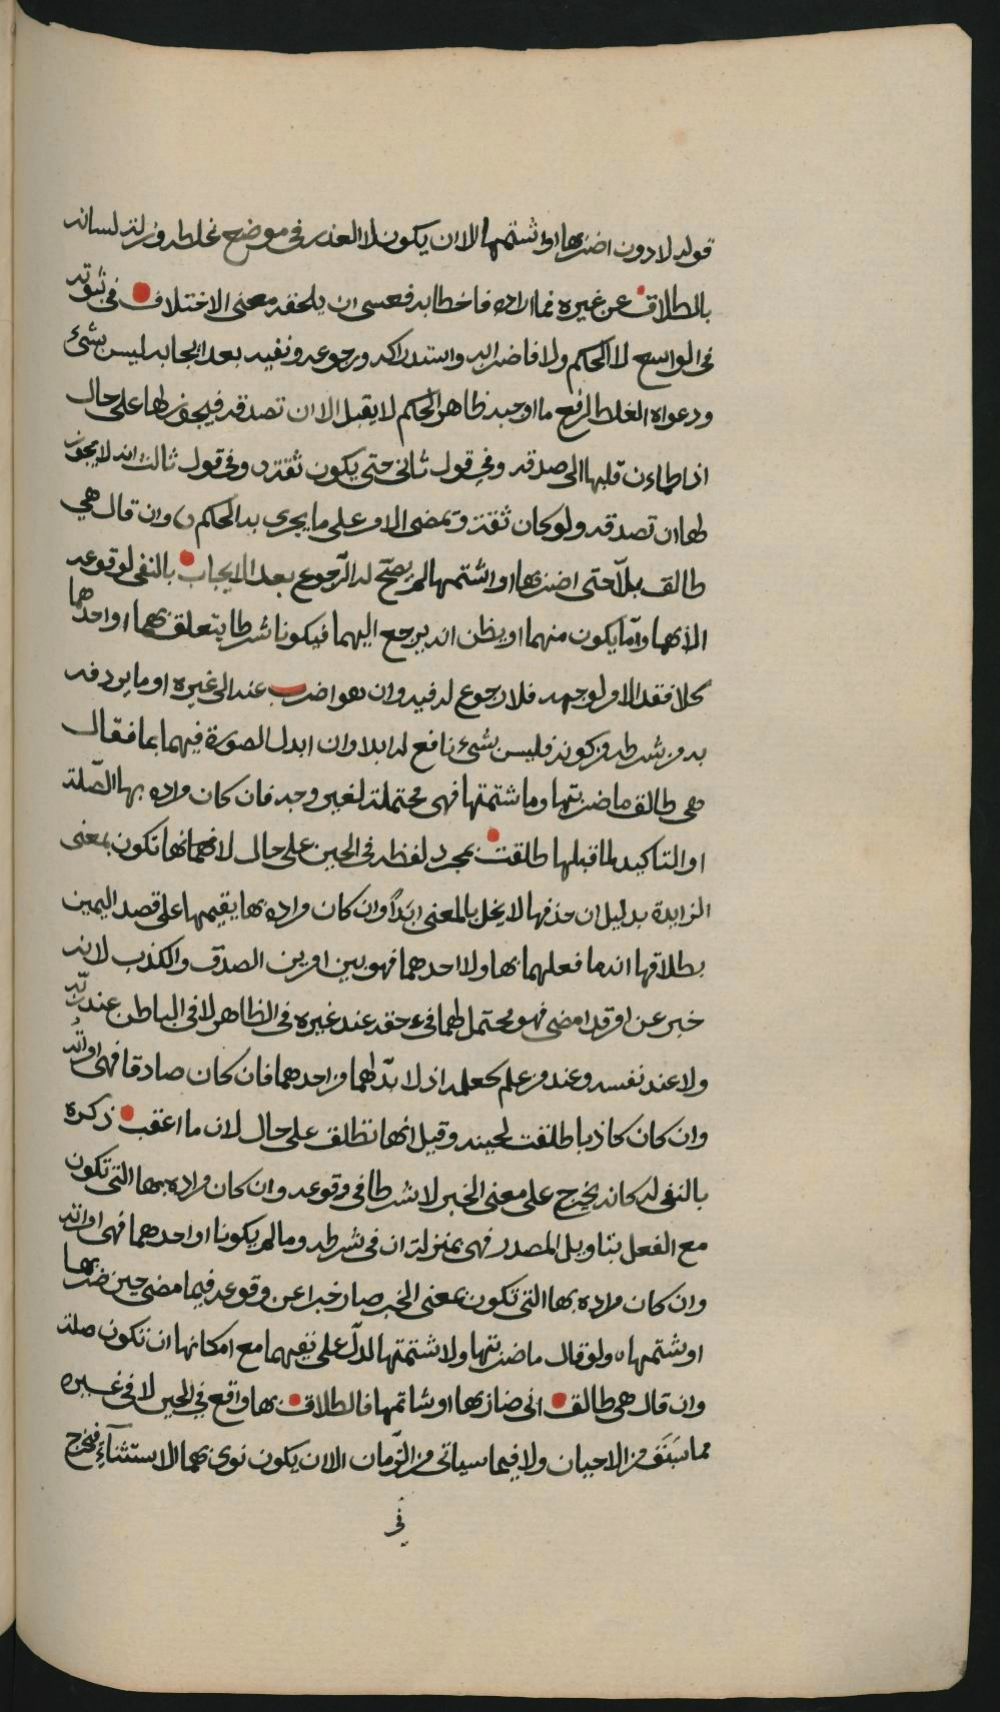 قوله لا دون اضربها او شتمها الا ان يكون لا العذر في موضع غلطه وزلة لسانه
بالطلاق عن غيره مما اراده فاخطا به فعسى ان يلحقه معنى الاختلاف في ثبوته
في الواسع لا الحكم ولا فاضرابه واستدراكه ورجوعه ونفيه بعد ايجابه ليس بشيء
ودعواه الغلط لرفع ما اوجبه ظاهر الحكم لا يقبل الا ان تصدقه فيجوز لها على حال
اذا طمان قلبها الى صدقه وفي قول ثاني حتى يكون ثقة وفي قول ثالث انه لا يجوز
لها ان تصدقه ولو كان ثقة ويمضى الامر على ما يجري به الحكم وان قال هي
طالق بلا حتى اضربها او اشتمها لم يصح له الرجوع بعد الايجاب بالنفي لوقوعه
الا بهما وما يكون منهما او يظن انه يرجع اليهما فيكونا شرطا يتعلق بهما او احدهما
كلا فقد الامر لوجهه فلا رجوع له فيه وان هو اضرب عنه الى غيره او ما يردفه
به من شرطه من كونه فليس بشيء نافع له ابدا وان ابدل الصورة فيهما بما فقال
هي طالق ما ضربتها وما شتمتها فهي محتملة لغير وجه فان كان مراده بها الصلة
او التاكيد لما قبلها طلقت بمجرد لفظه في الحين على حال لانهما انها تكون بمعنى
الزايدة بدليل ان حذفها لا يخل بالمعنى ابدا وان كان مراده بها يقيمها على قصد اليمين
بطلاقها انه ما فعلهما بها ولا احدهما فهو بين امرين الصدق والكذب لانه
خبر عن امر قد امضى فهو محتمل لهما في حقه عند غيره في الظاهر لا في الباطن عند ربه
ولا عند نفسه وعند من علم كعلمه اذ لا بد لهما من احدهما فان كان صادقا فهي امراته
وان كان كاذبا طلقت لحينه وقيل انها تطلق على حال لان ما اعقب ذكره
بالنفي له كانه يخرج على معنى الخبر لا شرطا في وقوعه وان كان مراده بها التي تكون
مع الفعل بتاويل المصدر فهي بمنزلة ان في شرطه وما لم يكونا او احدهما فهي امراته
وان كان مراده بها التي تكون بمعنى الخبر صار خبرا عن وقوعه فيما مضى حين ضربها
او شتمها ولو قال ما ضربتها ولا شتمتها لدل على نفيهما مع امكانها ان تكون صلة
وان قال هي طالق اني ضاربها او شاتمها فالطلاق بها واقع في الحين لا في غيره
مما سبق من الاحيان ولا فيما سياتي من الزمان الا ان يكون نوى بهما الاستثناء فيخرج
في